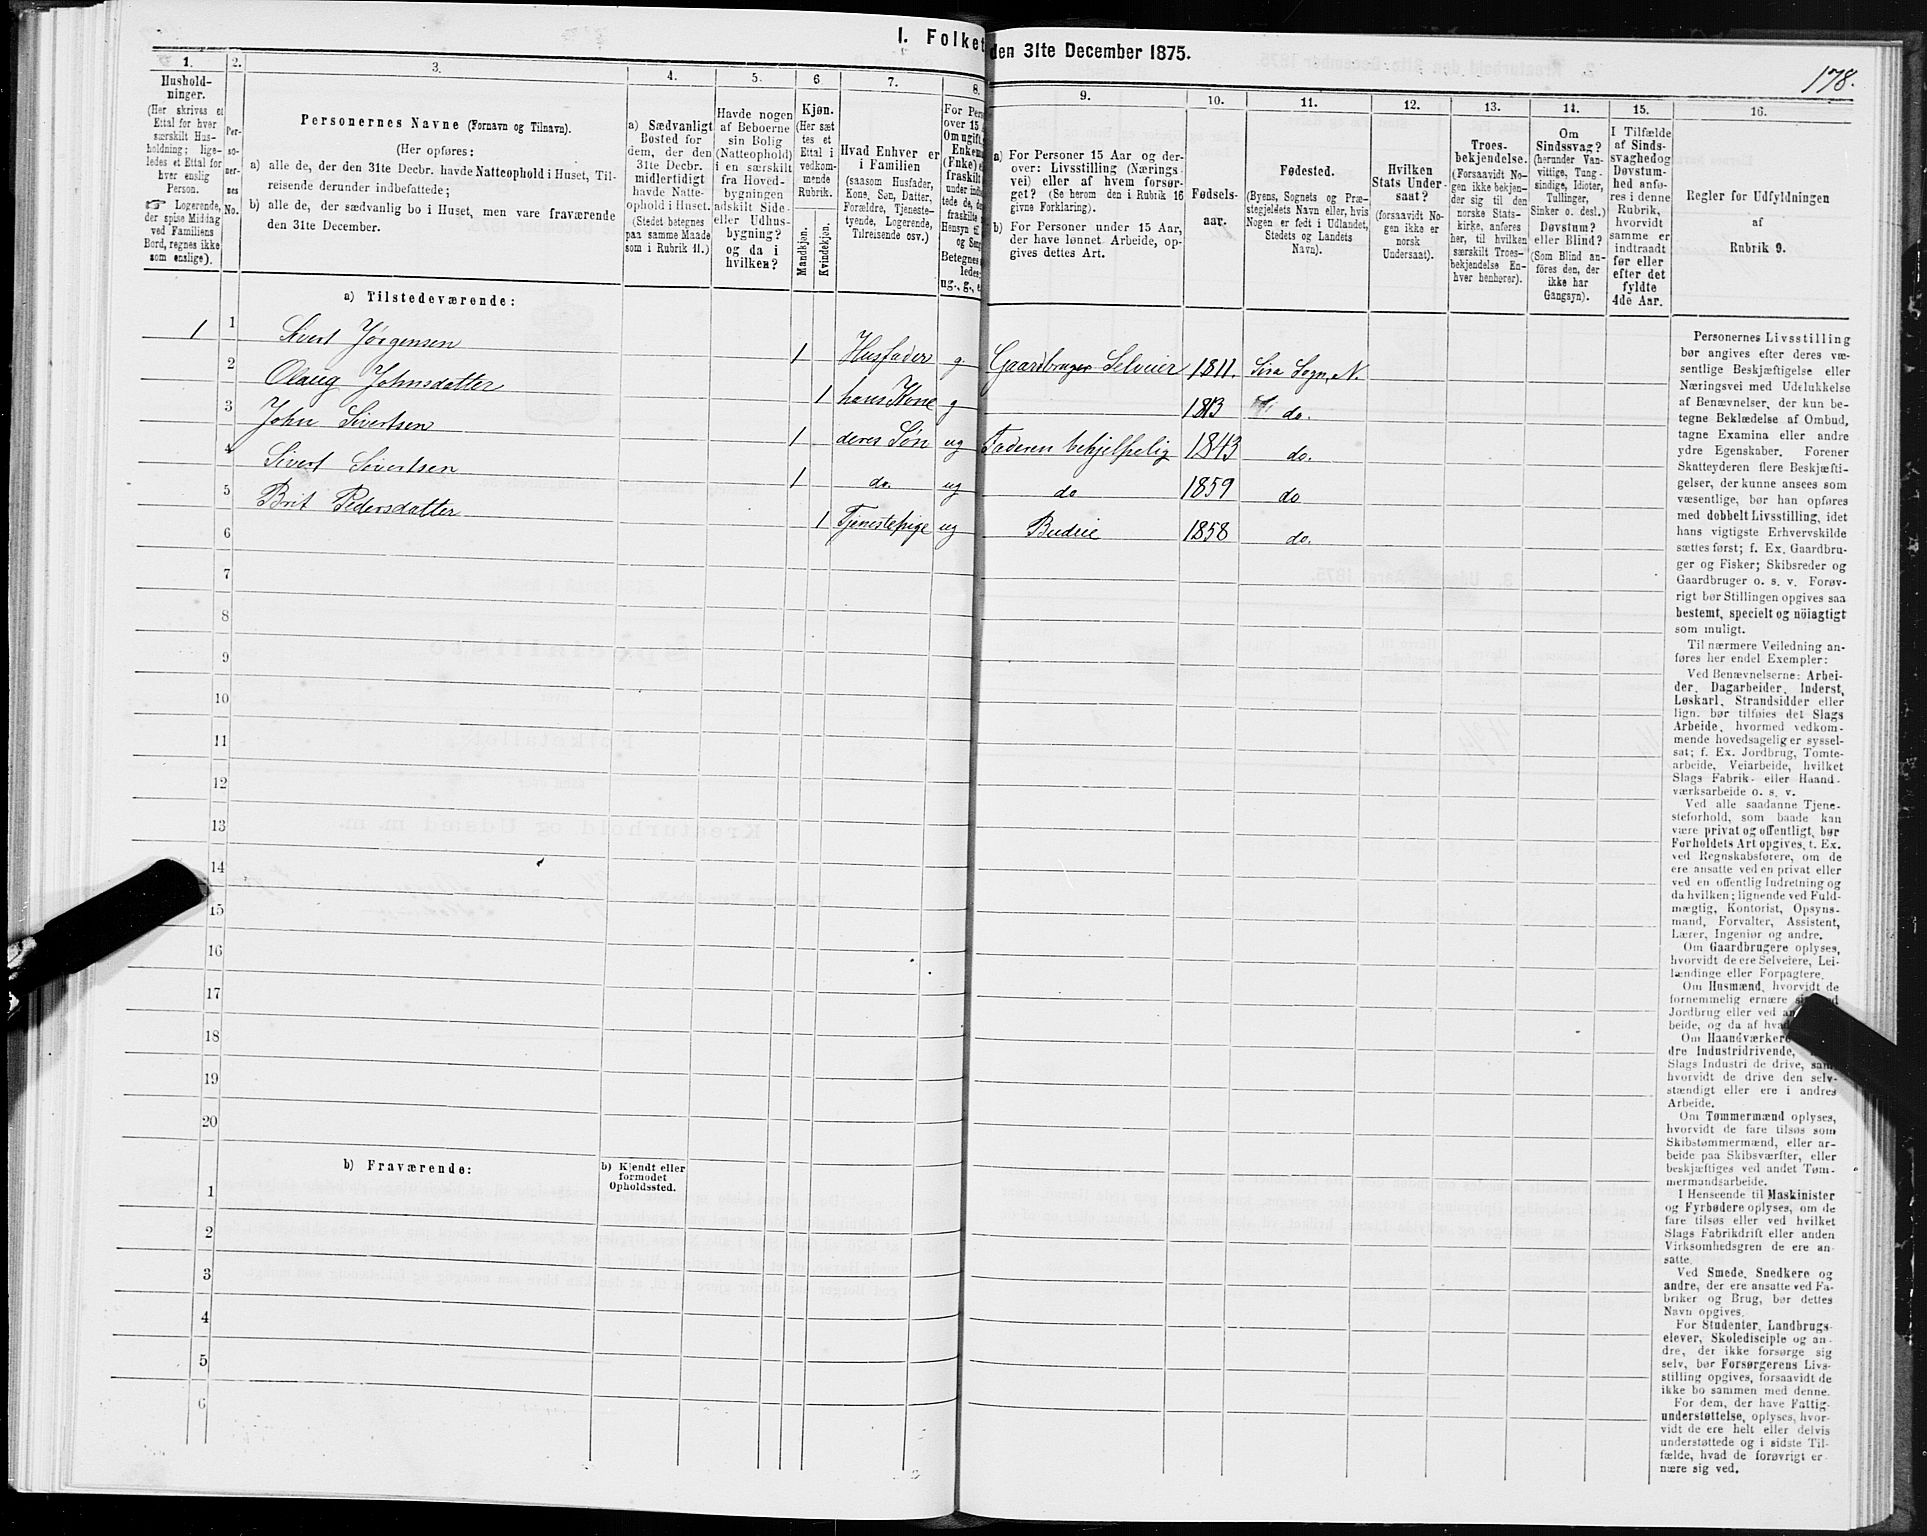 I. Folket
den 31te December 1875.
178.
1.
Hushold-
ninger.
(Her skrives et
Ettal for hver
særskilt Hus-
holdning; lige-
ledes et Ettal for
hver enslig
Person.
☞ Logerende,
der spise Middag
ved Familiens
Bord, regnes ikke
som enslige).
2.
Per-
so-
ner-
nes
No.
3.
Personernes Navne (Fornavn og Tilnavn).
(Her opføres:
a) alle de, der den 31te Decbr. havde Natteophold i Huset, Til-
reisende derunder indbefattede;
b) alle de, der sædvanlig bo i Huset, men vare fraværende
den 31te December.
4.
a) Sædvanligt
Bosted for
dem, der den
31te Decbr.
midlertidigt
havde Natte-
ophold i Huset.
(Stedet betegnes
paa samme Maade
som i Rubrik 11.)
5.
Havde nogen
af Beboerne
sin Bolig
(Natteophold)
i en særskilt
fra Hoved-
bygningen
adskilt Side-
eller Udhus-
bygning?
og da i
hvilken?
6.
Kjøn.
(Her sæt
tes et
Ettal i
vedkom-
mende
Rubrik.
Mandkjøn.
Kvindekjøn.
7.
Hvad Enhver er
i Familien
(saasom Husfader,
Kone, Søn, Datter,
Forældre, Tjeneste-
tyende, Logerende,
Tilreisende osv.)
8.
For Pers
over 15
Om ugift,
Enkem
(Fnke) e
fraskilt
under indb
tede de, d
fraskilte
Hensyn til
og Seng
Betegnes
ledes:
ug., g., e
9.
a) For Personer 15 Aar og der-
over: Livsstilling (Nærings-
vei) eller af hvem forsør-
get? (Se herom den i Rubrik 16
givne Forklaring).
b) For Personer under 15 Aar,
der have lønnet Arbeide, op-
gives dettes Art.
10.
Fødsels-
aar.
11.
Fødested.
(Byens, Sognets og Præ-
stegjeldets Navn eller, hvis
Nogen er født i Udlandet,
Stedets og Landets
Navn).
12.
Hvilken
Stats Under-
saat?
(forsaavidt No-
gen ikke er
norsk
Undersaat).
13.
Troes-
bekjendelse.
(Forsaavidt No-
gen ikke bekjen-
der sig til den
norske Stats-
kirke, anføres
her, til hvilken
særskilt Troes-
bekjendelse En-
hver henhører).
14.
Om
Sindssvag?
(herunder Van-
vittige, Tung-
sindige, Idioter,
Tullinger,
Sinker o. desl.)
Døvstum?
eller Blind?
(Som Blind an-
føres den, der
ikke har
Gangsyn).
15.
I Tilfælde
af Sinds-
svaghed og
Døvstum-
hed anfø-
res i denne
Rubrik,
hvorvidt
samme er
indtraadt
før eller
efter det
fyldte
4de Aar.
16.
Regler for Udfyldningen
af
Rubrik 9.
a) Tilstedeværende:
1 1 Sivert Jørgensen 1 Husfader g. Gaardbruger Selveier 1811. Sira Sogn, N.
2 Olaug Johnsdatter 1 hans Kone g 1813 do.
3 John Sivertsen 1 deres Søn ug Faderen behjelpelig 1843 do.
4 Sivert Sivertsen 1 do. ug do 1859 do
5 Brit Pedersdatter 1 Tjenestepige ug Budeie 1858 do.
6
7
8
9
10
11
12
13
14
15
16
17
18
19
20
b) Fraværende:
b) Kjendt eller
formodet
Opholdssted.
1
2
3
4
5
6
Personernes Livsstilling
bør angives efter deres væ-
sentlige Beskjæftigelse eller
Næringsvei med Udelukkelse
af Benævnelser, der kun be-
tegne Beklædelse af Ombud,
tagne Examina eller andre
ydre Egenskaber. Forener
Skatteyderen flere Beskjæfti-
gelser, der kunne ansees som
væsentlige, bør han opføres
med dobbelt Livsstilling, idet
hans vigtigste Erhvervskilde
sættes først; f. Ex. Gaardbru-
ger og Fisker; Skibsreder og
Gaardbruger o. s. v. Forøv-
rigt bør Stillingen opgives saa
bestemt, specielt og nöiagtigt
som muligt.
Til nærmere Veiledning an-
føres her endel Exempler:
Ved Benævnelserne: Arbei-
der, Dagarbeider, Inderst,
Løskarl, Strandsidder eller
lign. bør tilføies det Slags
Arbeide, hvormed vedkom-
mende hovedsagelig er syssel-
sat; f. Ex. Jordbrug, Tomte-
arbeide, Veiarbeide, hvilket
Slags Fabrik- eller Haand-
værksarbeide o. s. v.
Ved alle saadanne Tjene-
steforhold, som baade kan
være privat og offentligt, bør
Forholdets Art opgives, f. Ex.
ved Regnskabsførere, om de
ere ansatte ved en privat eller
ved en offentlig Indretning og
da hvilken; lignende ved Fuld-
mægtig, Kontorist, Opsyns-
mand, Forvalter, Assistent,
Lærer, Ingeniør og andre.
Om Gaardbrugere oplyses,
hvorvidt de ere Selveiere, Lei-
lændinge eller Forpagtere.
Om Husmænd, hvorvidt de
fornemmelig ernære sig ved
Jordbrug eller ved an
beide, og da af hvad
Om Haandværkere
dre Industridrivende,
Slags Industri de drive, samt
hvorvidt de drive den selv-
stændigt eller ere i andres
Arbeide.
Om Tømmermænd oplyses,
hvorvidt de fare tilsøs som
Skibstømmermænd, eller ar-
beide paa Skibsværfter, eller
beskjæftiges ved andet Tøm-
mermandsarbeide.
I Henseende til Maskinister
og Fyrbødere oplyses, om de
fare tilsøs eller ved hvilket
Slags Fabrikdrift eller anden
Virksomhedsgren de ere an-
satte.
Ved Smede, Snedkere og
andre, der ere ansatte ved Fa-
briker og Brug, bør dettes
Navn opgives.
For Studenter, Landbrugs-
elever, Skoledisciple og an-
dre, der ikke forsørge sig
selv, bør Forsørgerens Livs-
stilling opgives, forsaavidt de
ikke bo sammen med denne.
For dem, der have Fattig-
understøttelse, oplyses, hvor-
vidt de ere helt eller delvis
understøttede og i sidste Til-
fælde, hvad de forøvrigt er-
nære sig ved.